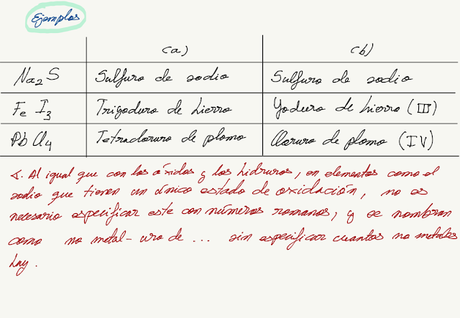 Ejemplos
(a) (b)
Na2S Sulfuro de sodio Sulfuro de sodio
Fe I3 Triyoduro de hierro Yoduro de hierro (III)
Pb Cl4 Tetracloruro de plomo Cloruro de plomo (IV)
Al igual que con los óxidos y los hidruros, en elementos como el
sodio que tienen un único estado de oxidación, no es
necesario especificar este con números romanos, y se nombran
como no metal-uro de ... sin especificar cuantos no metales
hay.